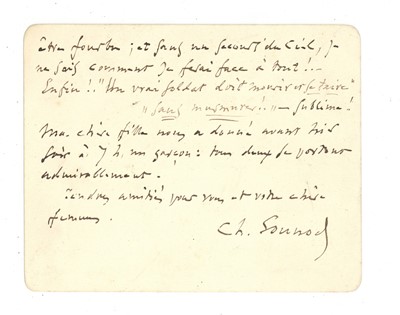 être fourbu ; et sans un secours du Ciel, je
ne sais comment je ferai face à tout !..
Enfin !! "Un vrai soldat doit mourir et se taire"
" "sans murmurer !.." — sublime !
Ma chère fille nous a donné avant hier
soir à 7 h. un garçon : tous deux se portent
admirablement.
Tendres amitiés pour vous et votre chère
femme.
Ch. Gounod